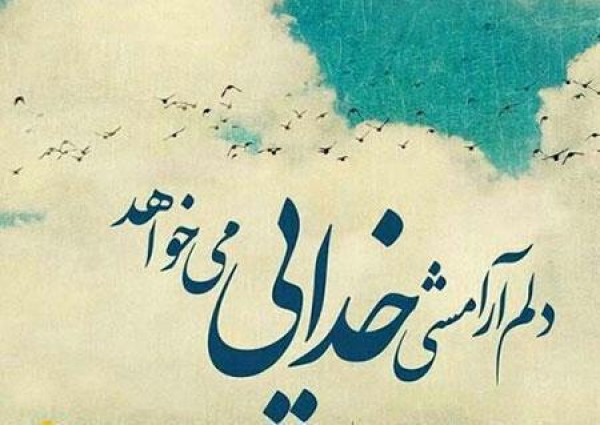 دلم آرامشی خدایی می‌خواهد